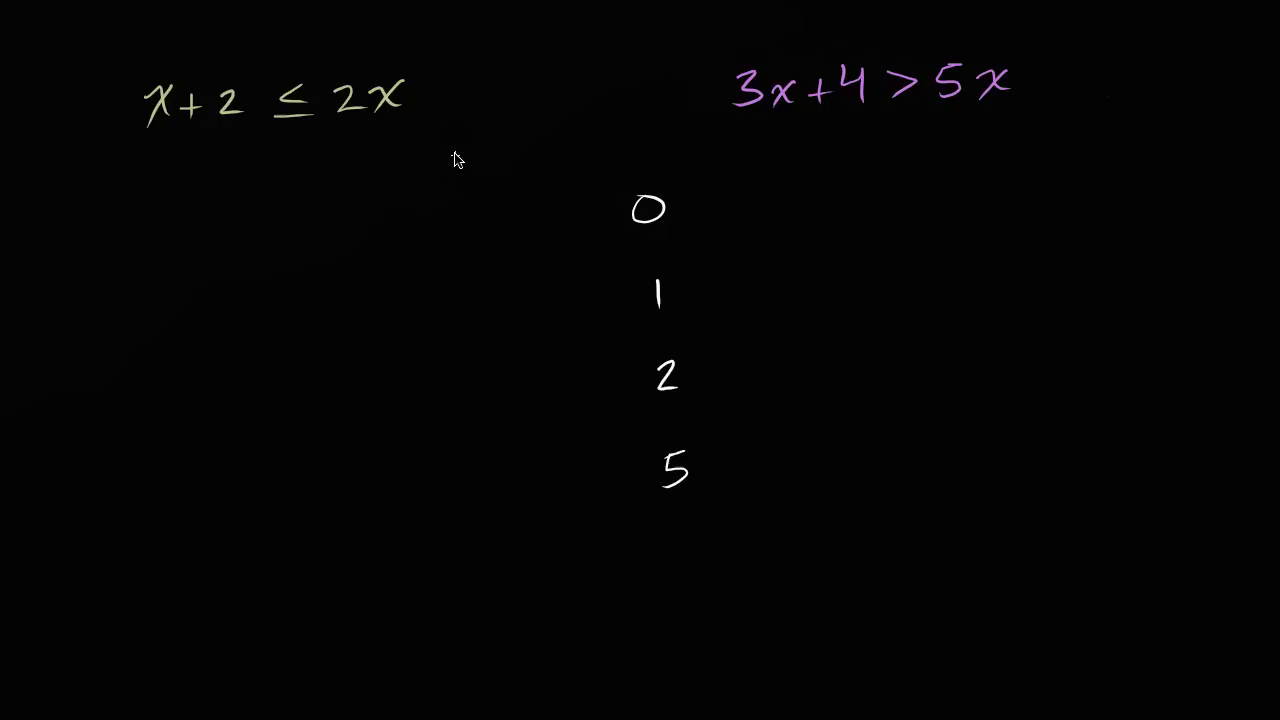 x+2 ≤ 2x
3x+4 > 5x
0
1
2
5